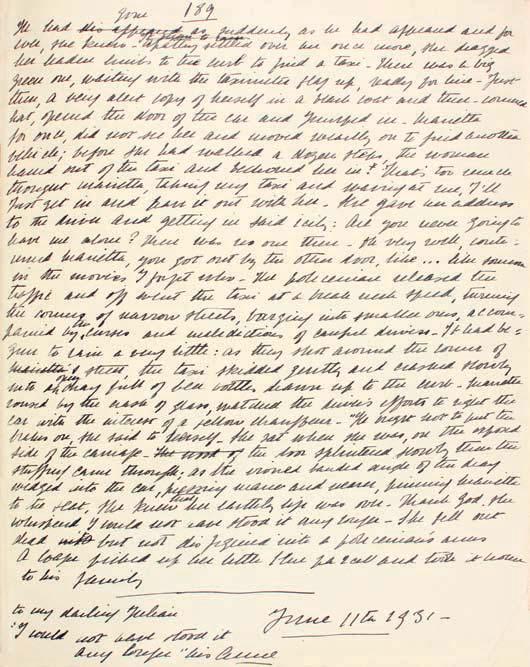 189
gone
He had his appeared as suddenly as he had appeared and for
ever, she knew. Apathy settled over her once more, she dragged
her leaden limbs to the curb to find a taxi. There was a big
green one, waiting with the taximeter flag up, ready for hire. Just
then, a very alert copy of herself in a black coat and three-corner
hat, opened the door of the car and jumped in. Mariette
for once, did not see her and moved wearily on to find another
vehicle; before she had walked a dozen steps, the woman
leaned out of the taxi and beckoned her in. That's too much
thought Mariette, taking my taxi and waving at me, I'll
just get in and have it out with her. She gave her address
to the driver and getting in said icily: Are you never going to
leave me alone? There was no one there. Oh very well, conti-
nued Mariette, you got out by the other door, like ... like someone
in the movies I forget who. The policeman released the
traffic and off went the taxi at a break neck speed, turning
the corners of narrow streets, barging into smaller ones, accom-
panied by the curses and maledictions of careful drivers. It had be-
gun to rain a very little: as they shot around the corner of
street, the taxi skidded gently and crashed slowly
into a dray full of beer bottles drawn up to the curb. Mariette
roused by the crash of glass, watched the driver's efforts to right the
car with the interest of a fellow chauffeur. "He ought not to put the
brakes on, she said to herself. She sat where she was, on the exposed
side of the carriage. The wood of the door splintered slowly then the
stuffing came through, as the ironed banded angle of the dray
wedged into the car, pressing nearer and nearer, pinning Mariette
to the seat. She knew then her earthly life was over. Thank God, she
whispered I would not have stood it any longer. She fell out
dead but not disfigured into a policeman's arms
A picked up her little blue parcel and took it home
to his family
to my darling Julian
"I would not have stood it
any longer" his Anne
June 11th 1931 -